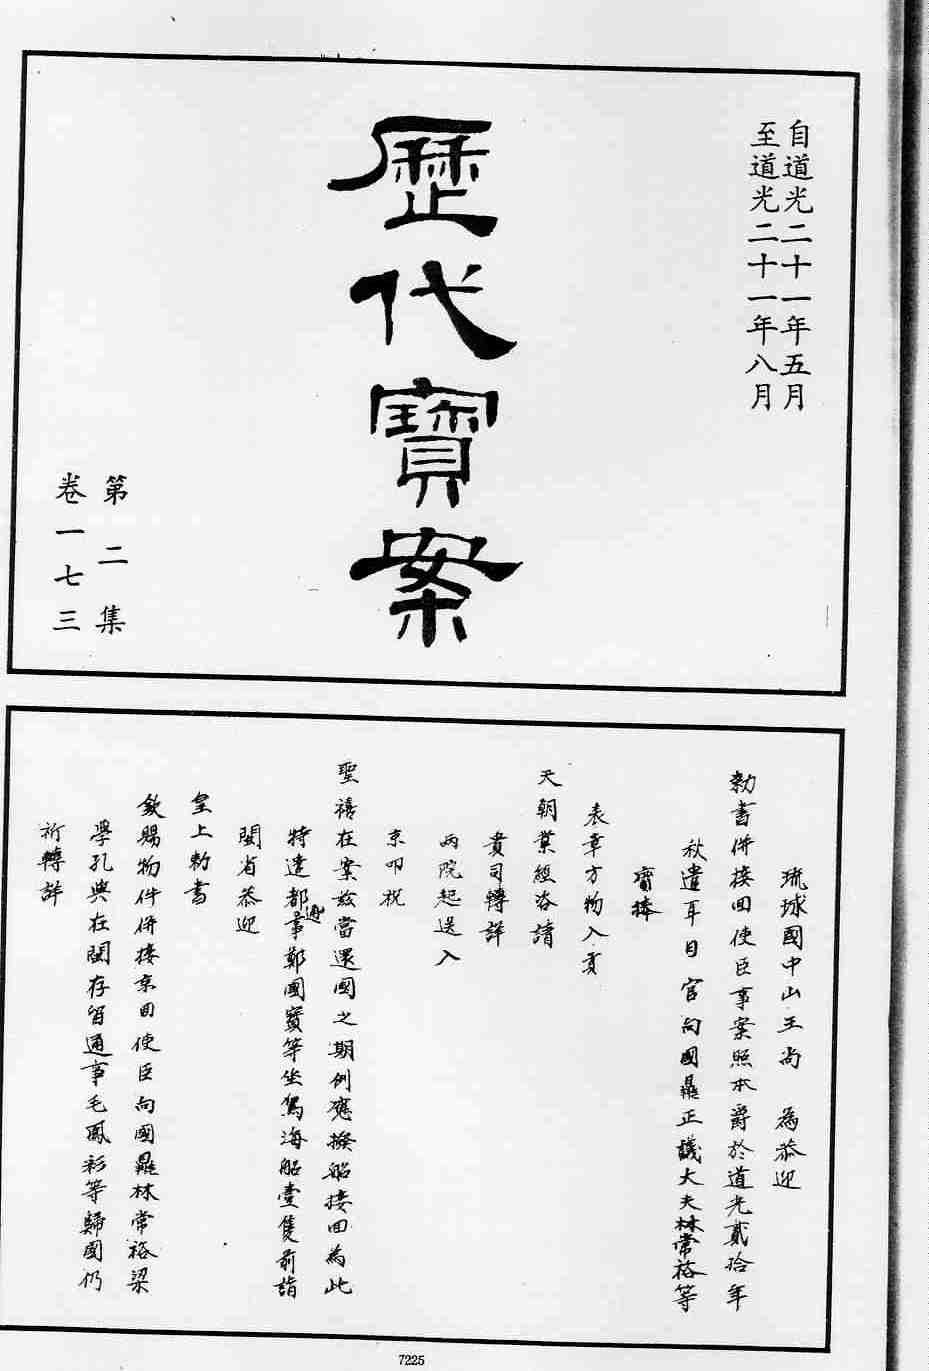 自道光二十一年五月
至道光二十一年八月
歷代寶案
第二集
卷一七三
琉球國中山王尚 為恭迎
勅書併接回使臣事案照本爵於道光貳拾年
秋遣耳目官向國鼎正議大夫林常裕等
齎捧
表章方物入貢
天朝業經咨請
貴司轉詳
兩院起送入
京叩祝
聖禧在案茲當還國之期例應撥船接回為此
特遣都通事鄭國寶等坐駕海船壹隻前詣
閩省恭迎
皇上勅書
欽賜物件併接京回使臣向國鼎林常裕梁
學孔與在閩存留通事毛鳳彩等歸國仍
祈轉詳
7225